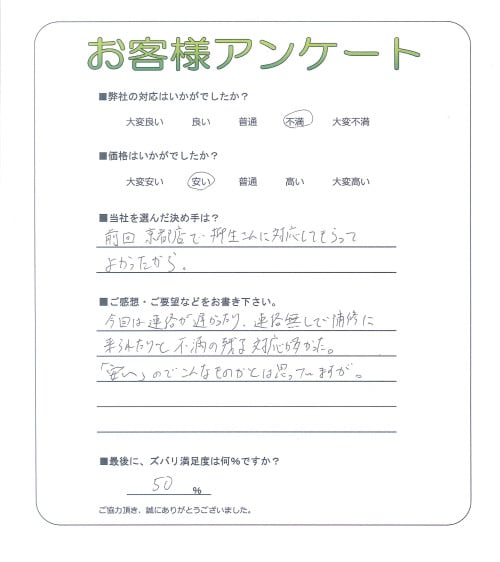 お客様アンケート
■弊社の対応はいかがでしたか？
大変良い 良い 普通 不満 大変不満
■価格はいかがでしたか？
大変安い 安い 普通 高い 大変高い
■当社を選んだ決め手は？
前回 京都店で 柳生さんに対応してもらって
よかったから。
■ご感想・ご要望などをお書き下さい。
今回は連絡が遅かったり、連絡無しで補修に
来られたりと 不満の残る対応が多かった。
「安い」のでこんなものかとは思っていますが。
■最後に、ズバリ満足度は何%ですか？
50 %
ご協力頂き、誠にありがとうございました。